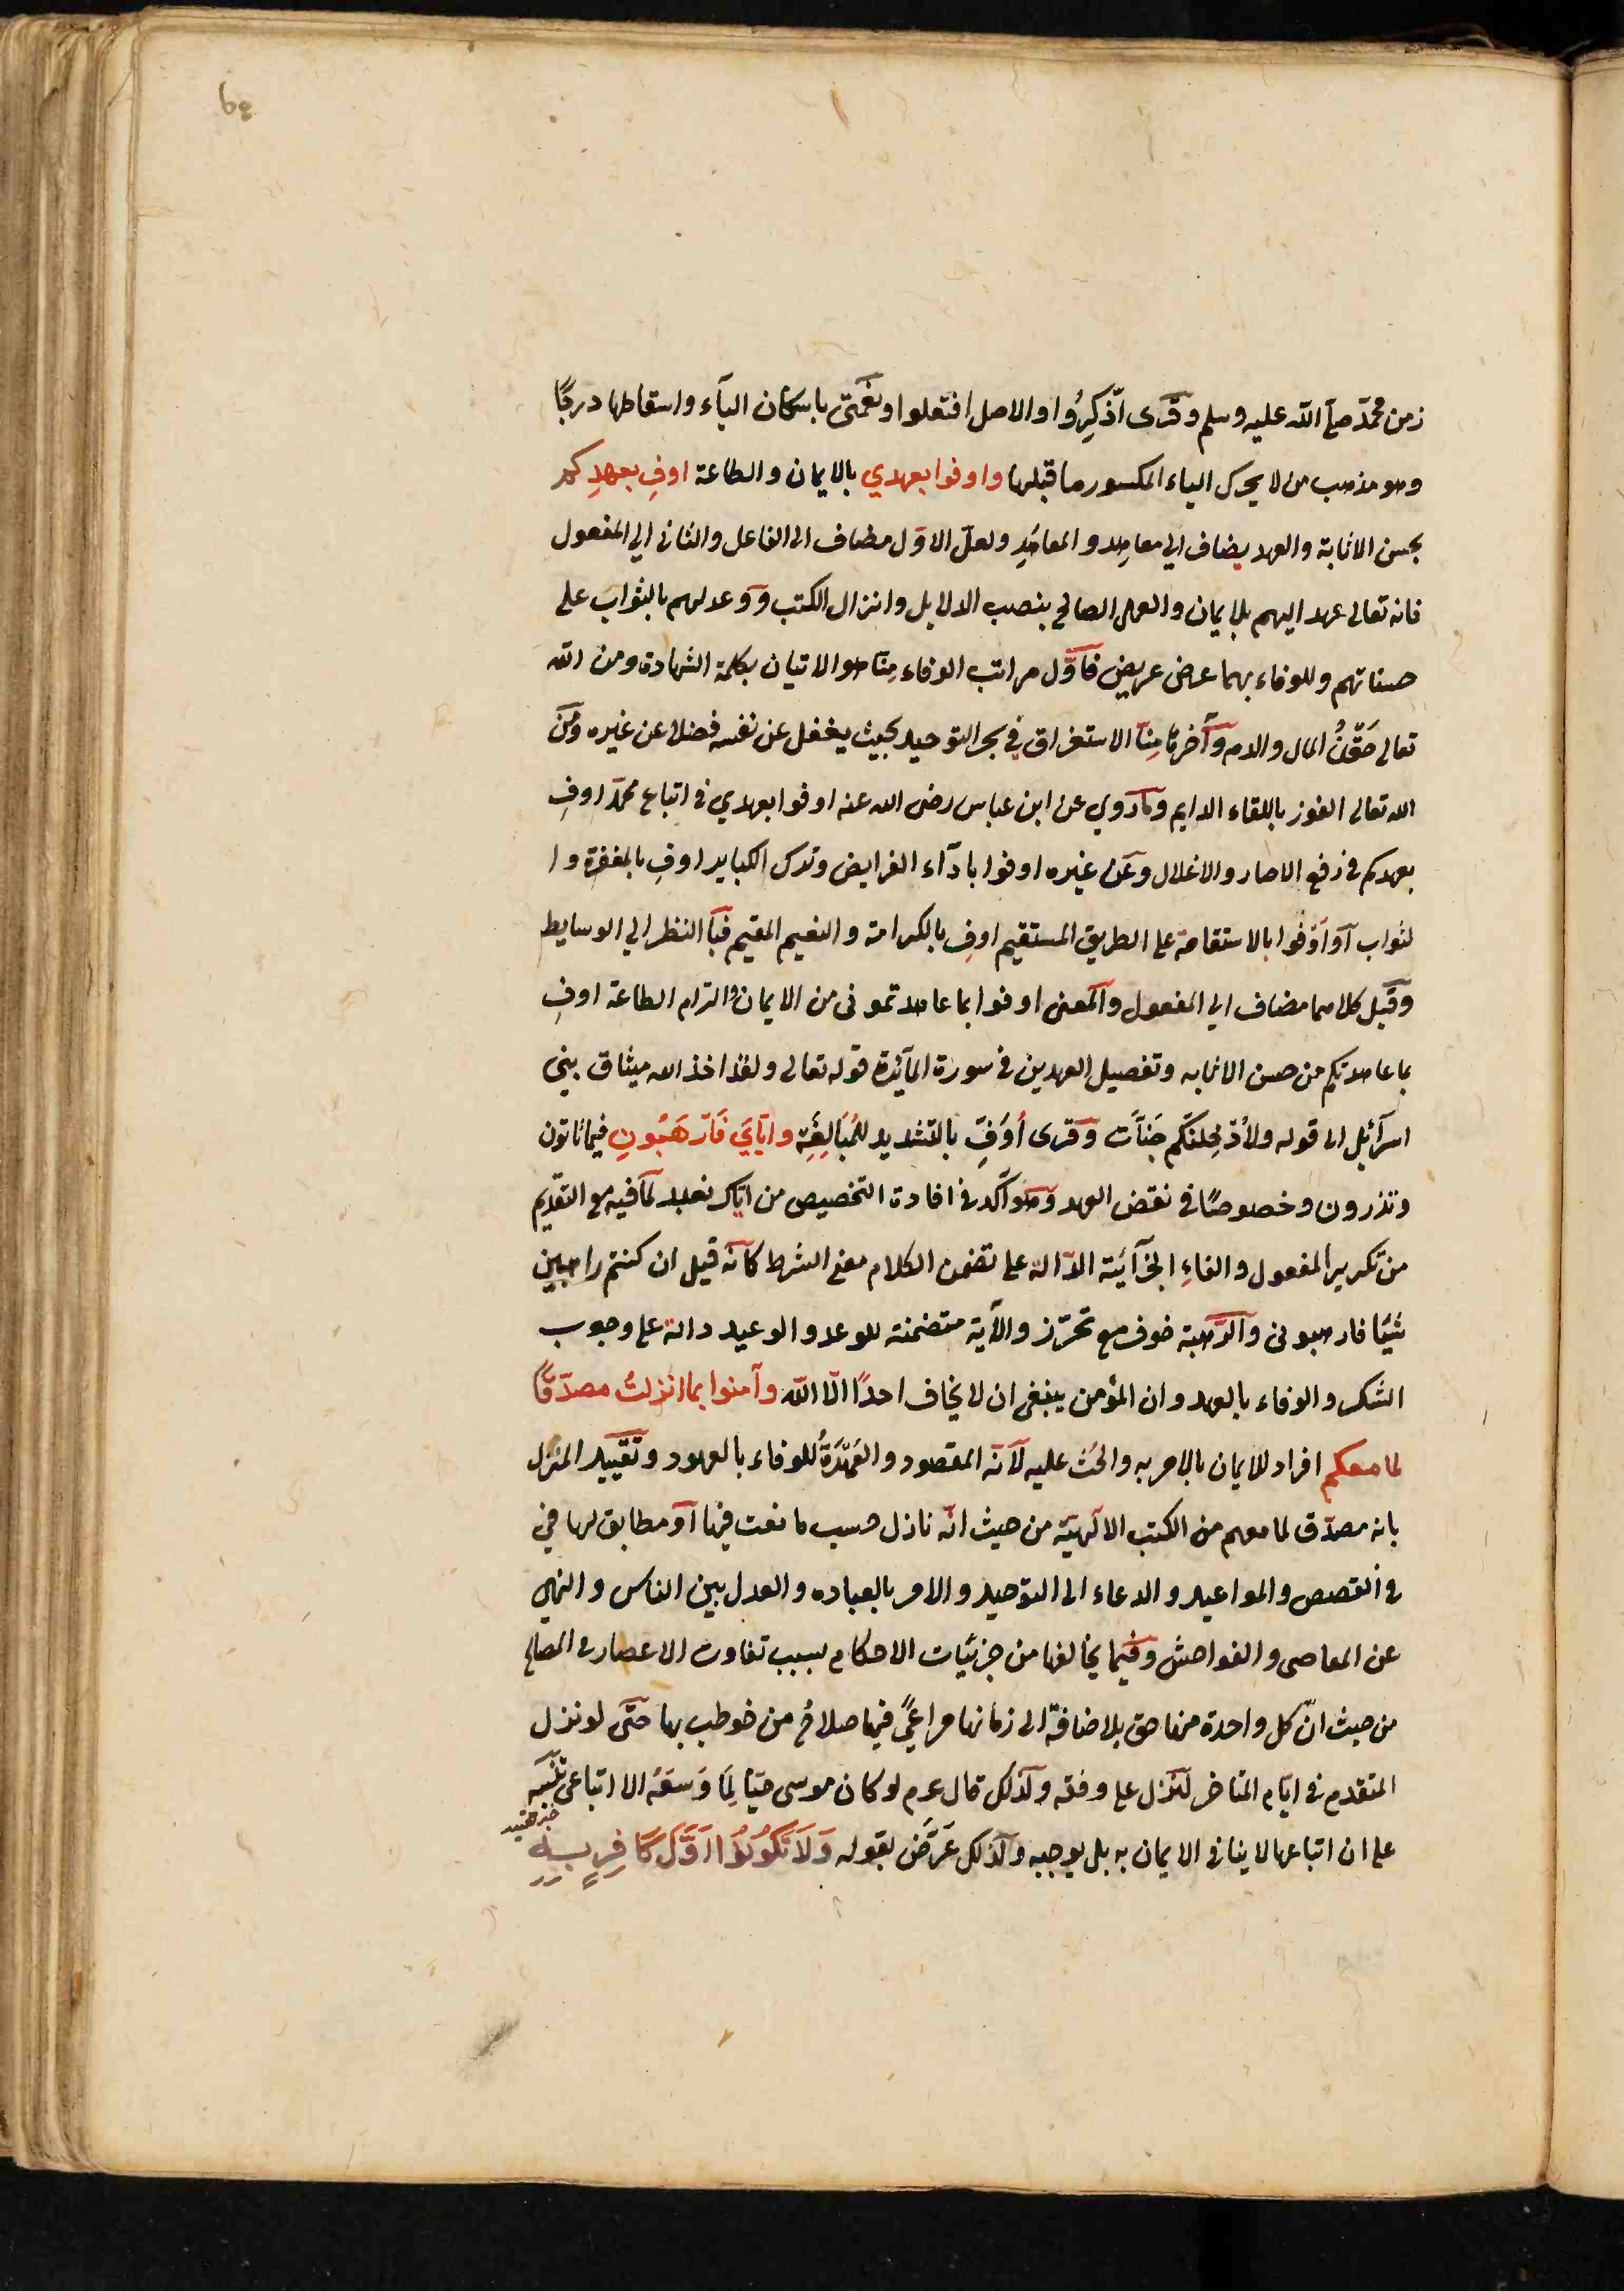 ٤٩
زمن محمّد صلّى الله عليه وسلم وقرى اذّكِرُوا والاصل افتعلوا ونعمتي باسكان اليآء واسقاطها درجًا
وهو مذهب من لا يحرك الياء المكسور ما قبلها واوفوا بعهدي بالايمان والطاعة اوفِ بعهدِكم
بحسن الاثابة والعهد يضاف الي معاهِد والمعاهَدِ ولعلّ الاوّل مضاف الى الفاعل والثاني الي المفعول
فانه تعالى عهد اليهم بالايمان والعمل الصالح بنصب الدلايل وانزال الكتب ووعد لهم بالثواب على
حسناتهم وللوفاء بهما عرض عريض فاوّل مراتب الوفاء مِنّا هو الاتيان بكلمة الشهادة ومن الله
تعالى حَقْنُ المال والدم وآخرها مِنّا الاستغراق في بحر التوحيد بحيث يغفل عن نفسه فضلا عن غيره ومن
الله تعالى الفوز باللقاء الدايم وما روي عن ابن عباس رضى الله عنه اوفوا بعهدي في اتباع محمّد اوفِ
بعهدكم في رفع الاصار والاغلال وعن غيره اوفوا بادآء الفرايض وترك الكباير اوفِ بالمغفرة وا
لثواب آو اوْفوا بالاستقامة على الطريق المستقيم اوفِ بالكرامة والنعيم المقيم فبا النظر الي الوسايط
وقيل كلاهما مضاف الي المفعول والمعنى اوفوا بما عاهدتموني من الايمان والتزام الطاعة اوفِ
بما عاهدتكم من حسن الاثابه وتفصيل العهدين في سورة المآئدة قوله تعالى ولقد اخذ الله ميثاق بني
اسرآئيل الى قوله ولأدْخِلنّكم جَنّات وقرى أُوَفِّ بالتشديد للمُبَالغة واِيّايَ فَارْهَبُونِ فيما تاتون
وتذرون وخصوصًا في نقض العهد وهو آكد في افادة التخصيص من ايّاك نعبد لما فيه مع التقديم
من تكرير المفعول والفاءِ الجزآئيّة الدّالة على تضمن الكلام معنى الشرط كانّه قيل ان كنتم راهبين
شيًا فارهبوني والرّهبة خوف مع تحرّز والآية متضمنة للوعد والوعيد دالة على وجوب
الشكر والوفاء بالعهد وان المؤمن ينبغي ان لا يخاف احدًا الّا الله وآمنوا بما انزلتُ مصدّقًا
لما معكم افراد للايمان بالامر به والحث عليه لانّه المقصود والعُمْدَةُ للوفاء بالعهود وتقييد المنزل
بانه مصدّق لما معهم من الكتب الالهيّة من حيث انّه نازل حسب ما نعت فيها آو مطابق لها في
في القصص والمواعيد والدعاء الى التوحيد والامر بالعباده والعدل بين الناس والنهي
عن المعاصي والفواحش وفيما يخالفها من جزئيّات الاحكام بسبب تفاوت الاعصار في المصالح
من حيث انّ كل واحدة منها حق بلاضافة الى زمانها مراعيً فيها صلاح من خوطب بها حتّى لو نزل
المتقدم في ايّام المتاخر لنزل على وفقه ولذلك قال عم لو كان موسى حيّا لمَا وَسعَهُ الا اتباعي تنبيه
خبر تقييد
على ان اتباعها لا ينافى الايمان به بل يوجبه ولذلك عَرَّض بقوله وَلَا تَكُونُوا اَوَّلَ كَافِرٍ بِهِ